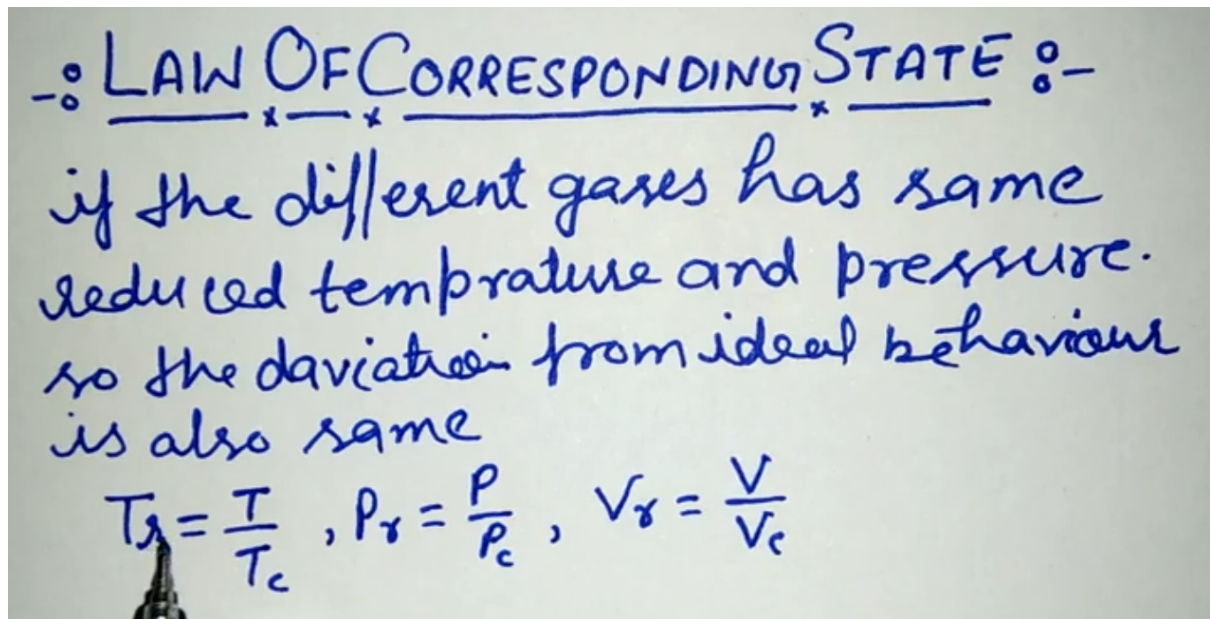 -: LAW OF CORRESPONDING STATE :-
if the different gases has same
reduced temprature and pressure.
so the daviation from ideal behaviour
is also same
Tr = T/Tc , Pr = P/Pc , Vr = V/Vc